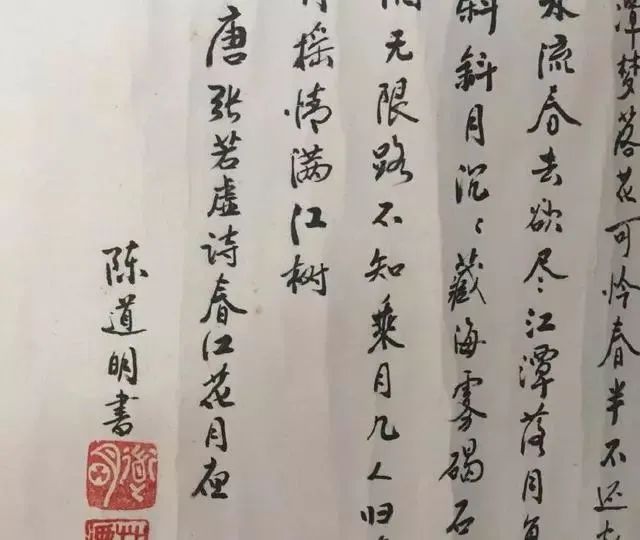 潭梦落花可怜春半不还家
水流春去欲尽江潭落月复
斜斜月沉〻藏海雾碣石
湘无限路不知乘月几人归
摇情满江树
唐张若虚诗春江花月夜
陈道明书
道明